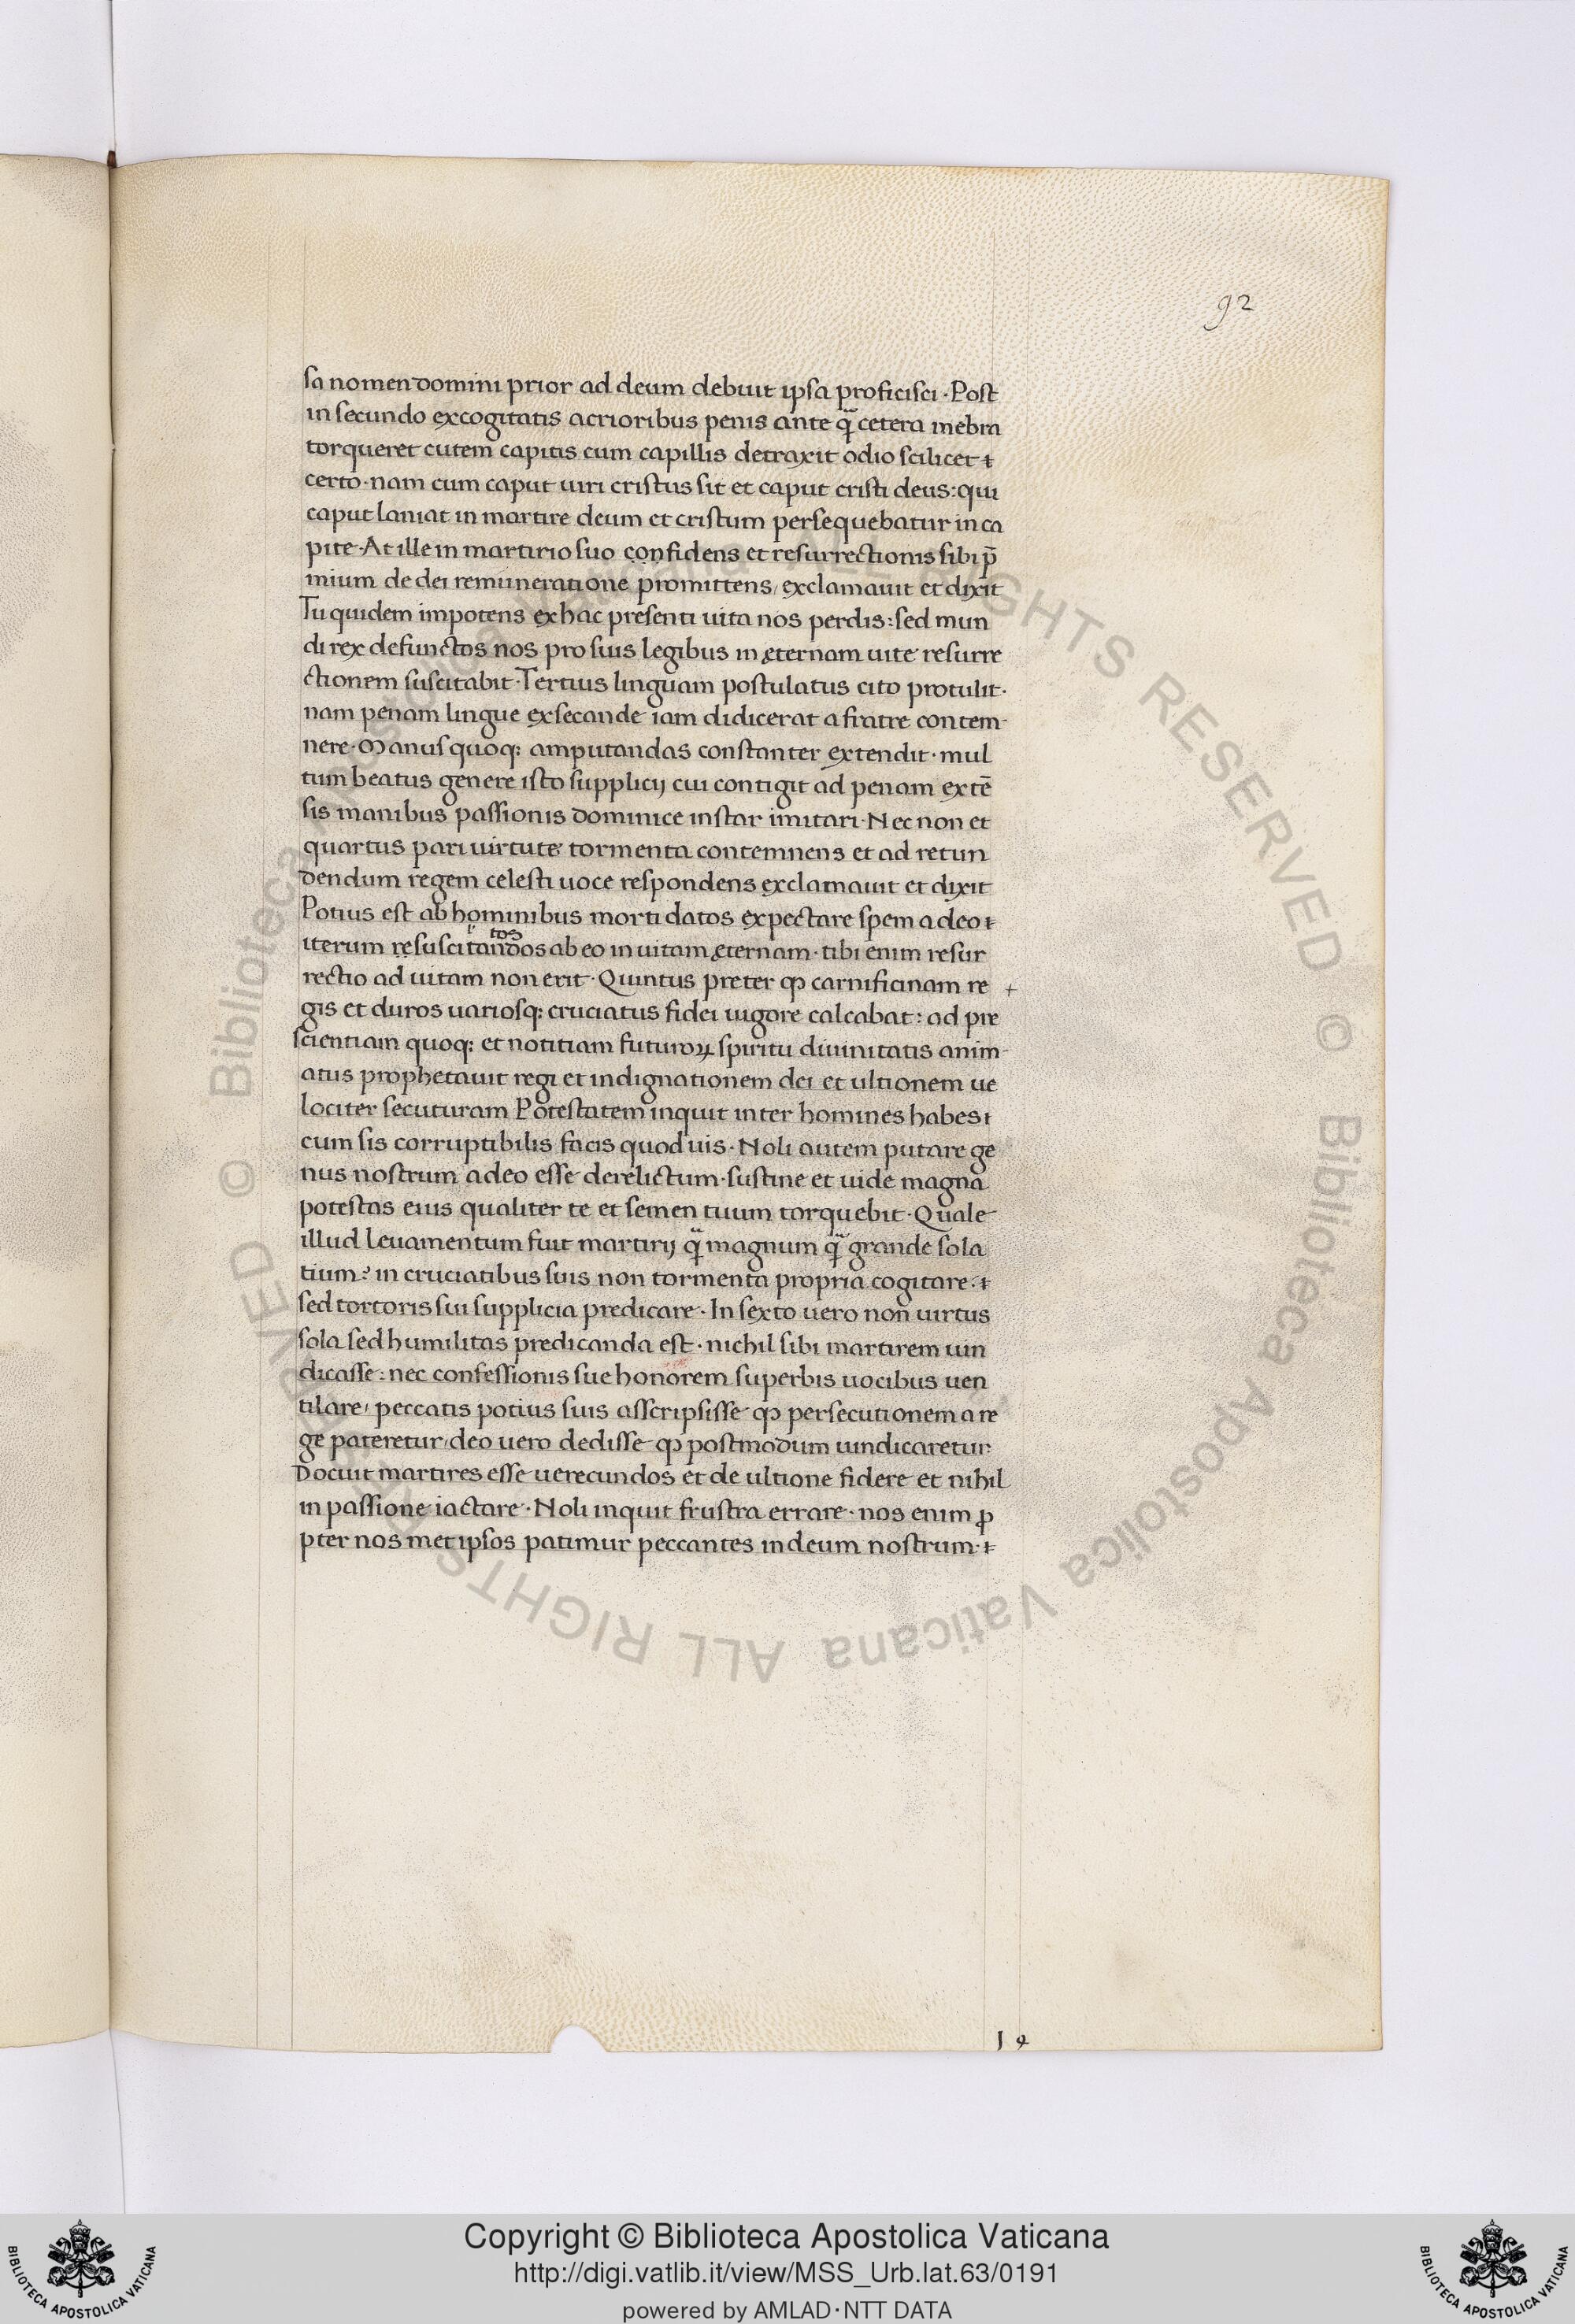 92
sa nomen domini prior ad deum debuit ipsa proficisci · Post
in secundo excogitatis acrioribus penis ante q̄ cetera mēbra
torqueret cutem capitis cum capillis detraxit odio scilicet ⁊
certo · nam cum caput uiri cristus sit et caput cristi deus: qui
caput laniat in martire deum et cristum persequebatur in ca
pite · At ille in martirio suo confidens et resurrectionis sibi p̄
mium de dei remuneratione promittens, exclamauit et dixit
Tu quidem impotens ex hac presenti uita nos perdis: sed mun
di rex defunctos nos pro suis legibus in ęternam uite resurre
ctionem suscitabit · Tertius linguam postulatus cito protulit ·
nam penam lingue exsecande iam didicerat a fratre contem-
nere · Manus quoq; amputandas constanter extendit · mul
tum beatus genere isto supplicij cui contigit ad penam extē
sis manibus passionis dominice instar imitari · Nec non et
quartus pari uirtute tormenta contemnens et ad retun
dendum regem celesti uoce respondens exclamauit et dixit
Potius est ab hominibus morti datos expectare spem a deo ⁊
tos
iterum resuscitandos ab eo in uitam ęternam · tibi enim resur
rectio ad uitam non erit · Quintus preter ꝙ carnificinam re +
gis et duros uariosq; cruciatus fidei uigore calcabat: ad pre
scientiam quoq; et notitiam futuroꝝ spiritu diuinitatis anim-
atus prophetauit regi et indignationem dei et ultionem ue
lociter secuturam Potestatem inquit inter homines habes ⁊
cum sis corruptibilis facis quod uis · Noli autem putare ge
nus nostrum a deo esse derelictum · sustine et uide magna
potestas eius qualiter te et semen tuum torquebit · Quale
illud leuamentum fuit martirij q̄ magnum q̄ grande sola
tium? in cruciatibus suis non tormenta propria cogitare · ⁊
sed tortoris sui supplicia predicare · In sexto uero non uirtus
sola sed humilitas predicanda est · nichil sibi martirem uin
dicasse: nec confessionis sue honorem superbis uocibus uen
tilare, peccatis potius suis asscripsisse ꝙ persecutionem a re
ge pateretur, deo uero dedisse ꝙ postmodum uindicaretur
Docuit martires esse uerecundos et de ultione fidere et nihil
in passione iactare · Noli inquit frustra errare · nos enim ꝓ
pter nos met ipsos patimur peccantes in deum nostrum · ⁊
© Biblioteca Apostolica Vaticana ALL RIGHTS RESERVED © Biblioteca Apostolica Vaticana ALL RIGHTS RESERVED
Copyright © Biblioteca Apostolica Vaticana
http://digi.vatlib.it/view/MSS_Urb.lat.63/0191
powered by AMLAD·NTT DATA
BIBLIOTECA APOSTOLICA VATICANA
BIBLIOTECA APOSTOLICA VATICANA